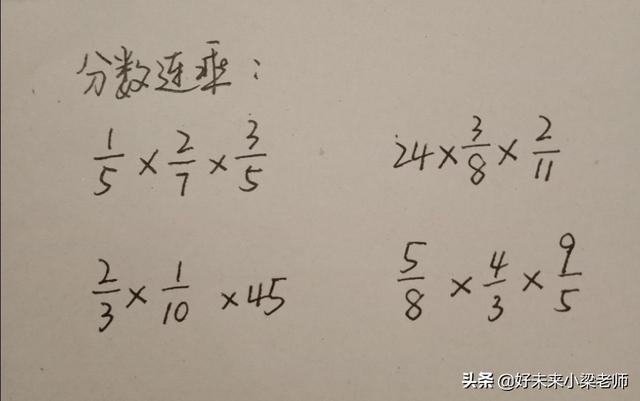 分数连乘:
1/5 × 2/7 × 3/5
24 × 3/8 × 2/11
2/3 × 1/10 × 45
5/8 × 4/3 × 9/5
头条 @好未来小梁老师